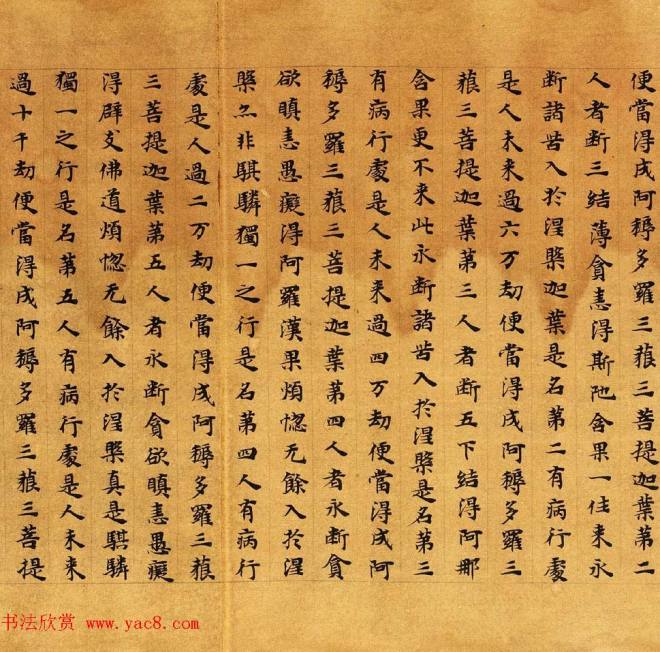 便當得成阿耨多羅三藐三菩提迦葉第二
人者断三結薄貪恚得斯陁含果一往来永
断諸苦入於涅槃迦葉是名第二有病行處
是人未来過六万劫便當得成阿耨多羅三
藐三菩提迦葉第三人者断五下結得阿那
含果更不来此永断諸苦入於涅槃是名第三
有病行處是人未来過四万劫便當得成阿
耨多羅三藐三菩提迦葉第四人者永断貪
欲瞋恚愚癡得阿羅漢果煩惱无餘入於涅
槃亦非騏驎獨一之行是名第四人有病行
處是人過二万劫便當得成阿耨多羅三藐
三菩提迦葉第五人者永断貪欲瞋恚愚癡
得辟支佛道煩惱无餘入於涅槃真是騏驎
獨一之行是名第五人有病行處是人未来
過十千劫便當得成阿耨多羅三藐三菩提
书法欣赏 www.yac8.com